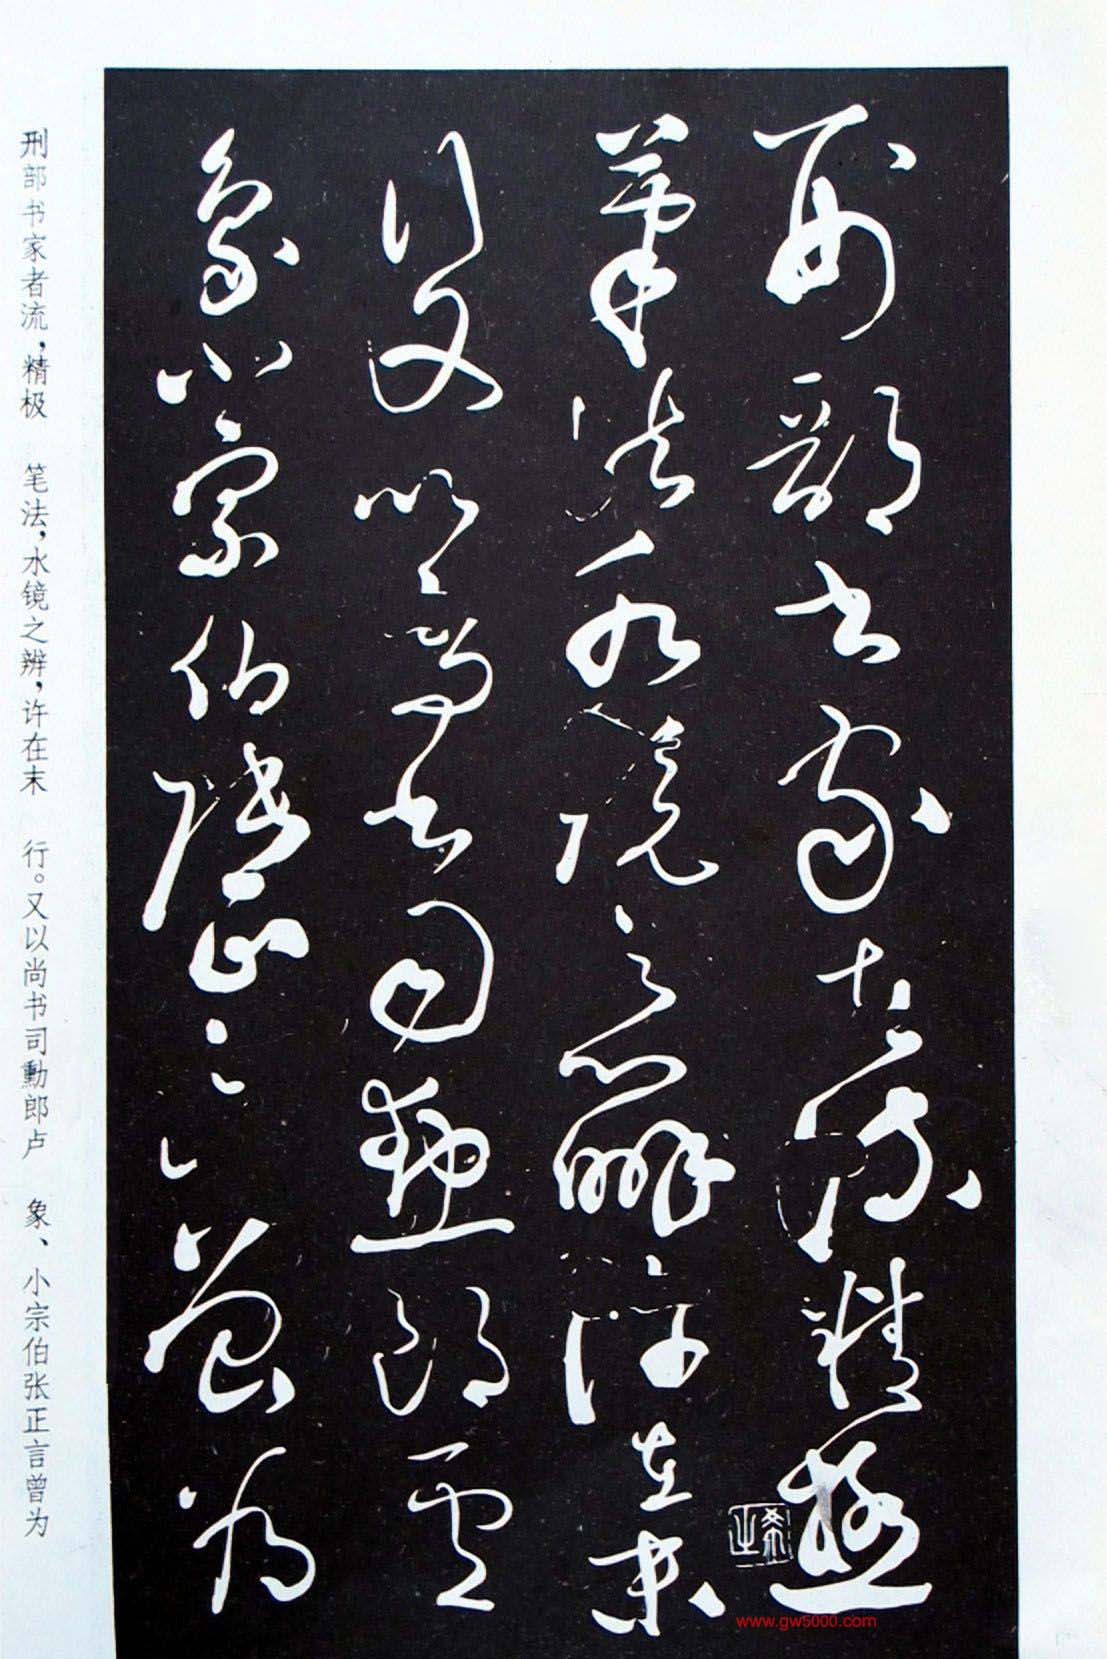 刑部书家者流，精极 笔法，水镜之辨，许在末 行。又以尚书司勳郎卢 象、小宗伯张正言曾为
刑部書家者流精極
筆法水鏡之辨許在末
行又以尚書司勳郎盧
象小宗伯張正言曾為
www.gw5000.com